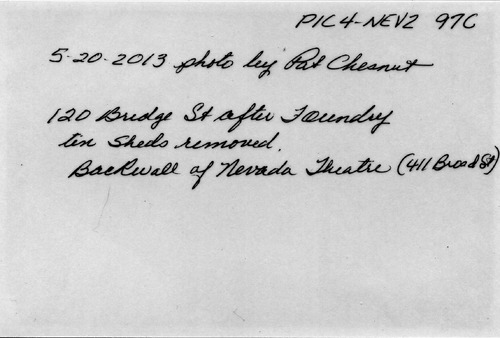 PIC4-NEV2 97C
5-20-2013 photo by Pat Chesnut
120 Bridge St after Foundry
tin sheds removed.
Backwall of Nevada Theatre (411 Broad St)